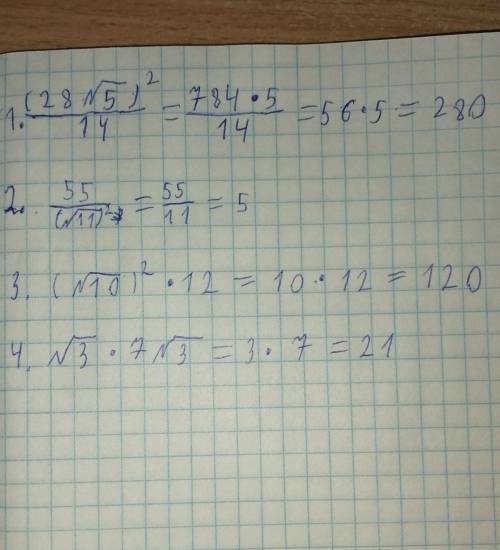 1. (28√5)²/14 = 784·5/14 = 56·5 = 280
2. 55/(√11)² = 55/11 = 5
3. (√10)² · 12 = 10 · 12 = 120
4. √3 · 7√3 = 3 · 7 = 21